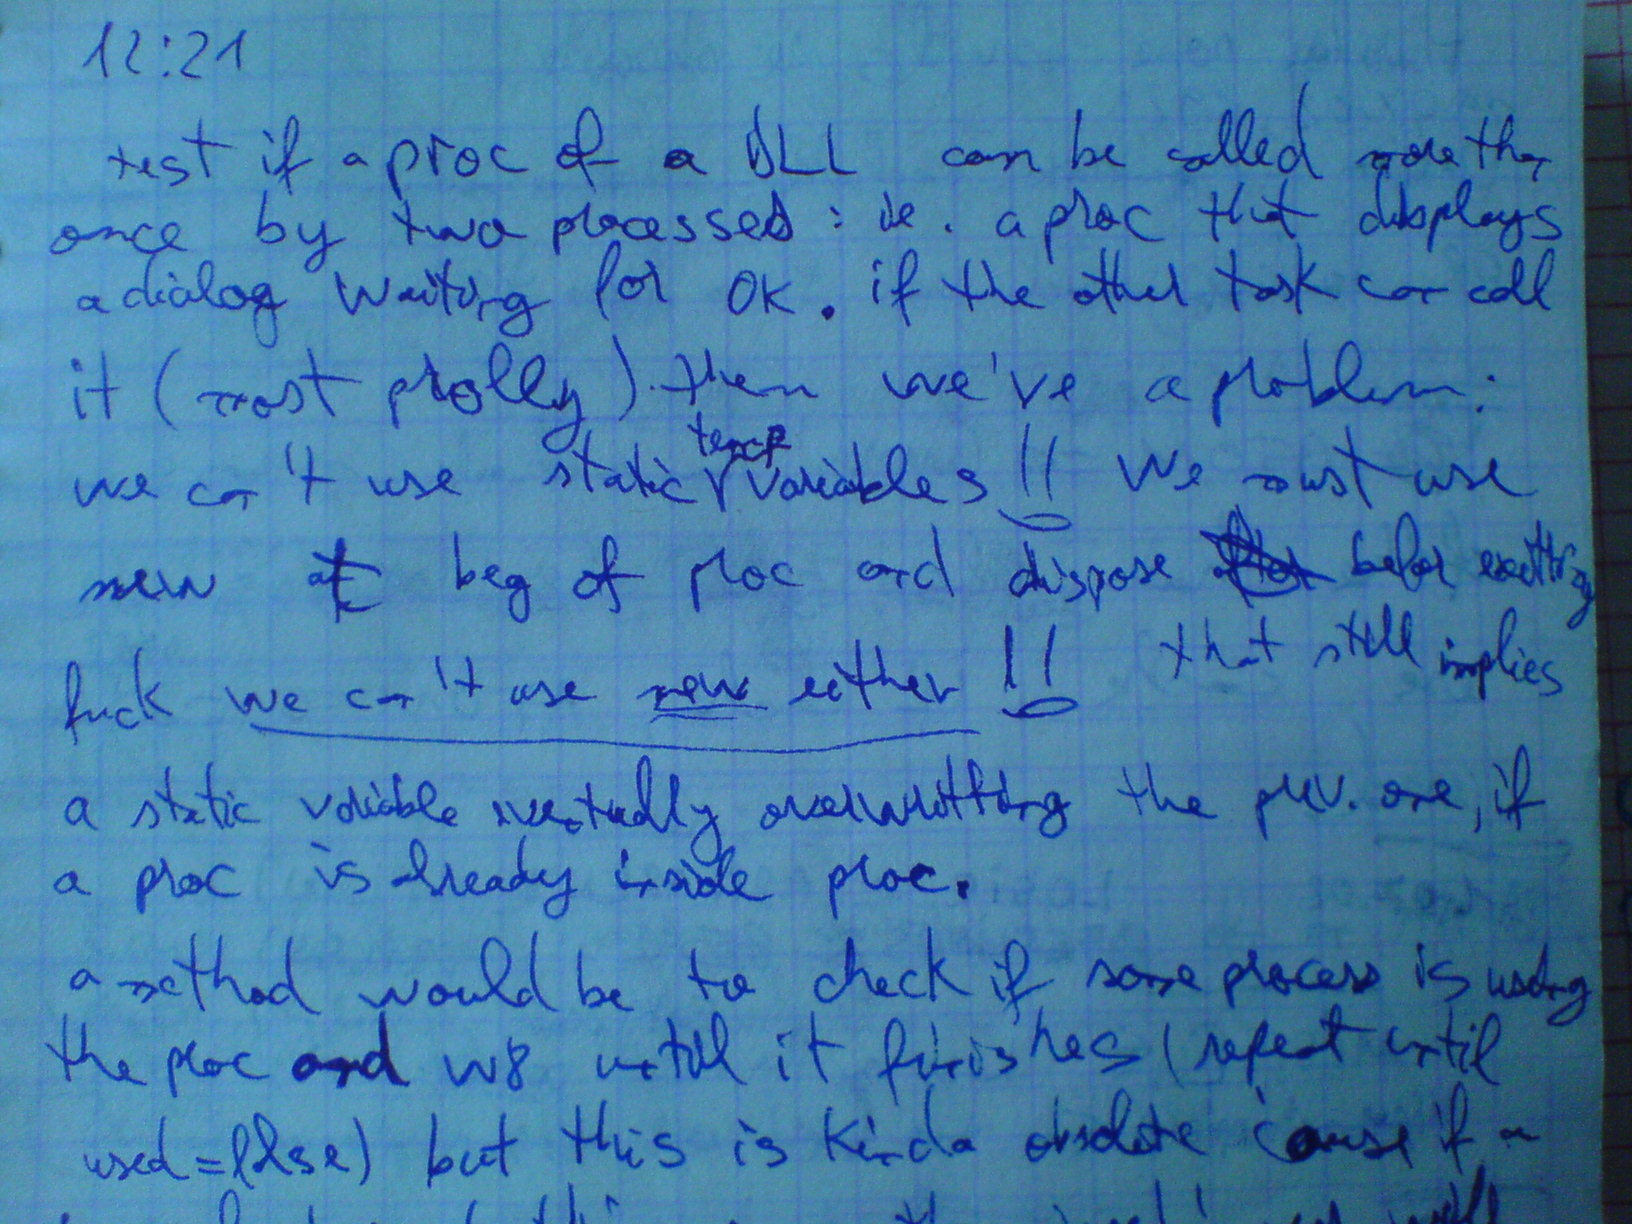 12:21
test if a proc of a DLL can be called more than
once by two processes : ie. a proc that displays
a dialog waiting for OK. if the other task can call
it (most prolly) then we've a problem:
temp
we can't use static variables !! We must use
new at beg of proc and dispose befor exitting
fuck we can't use new either !! that still implies
a static variable eventually overwritting the prev. one, if
a proc is already inside proc.
a method would be to check if some process is using
the proc and w8 until it finishes (repeat until
used=false) but this is kinda obsolete 'cause if a